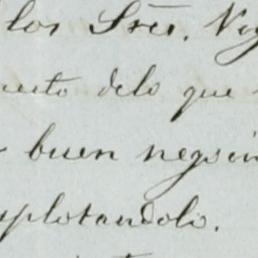 los Sres. Nog
uesto delo que
buen negocio
splotandolo.